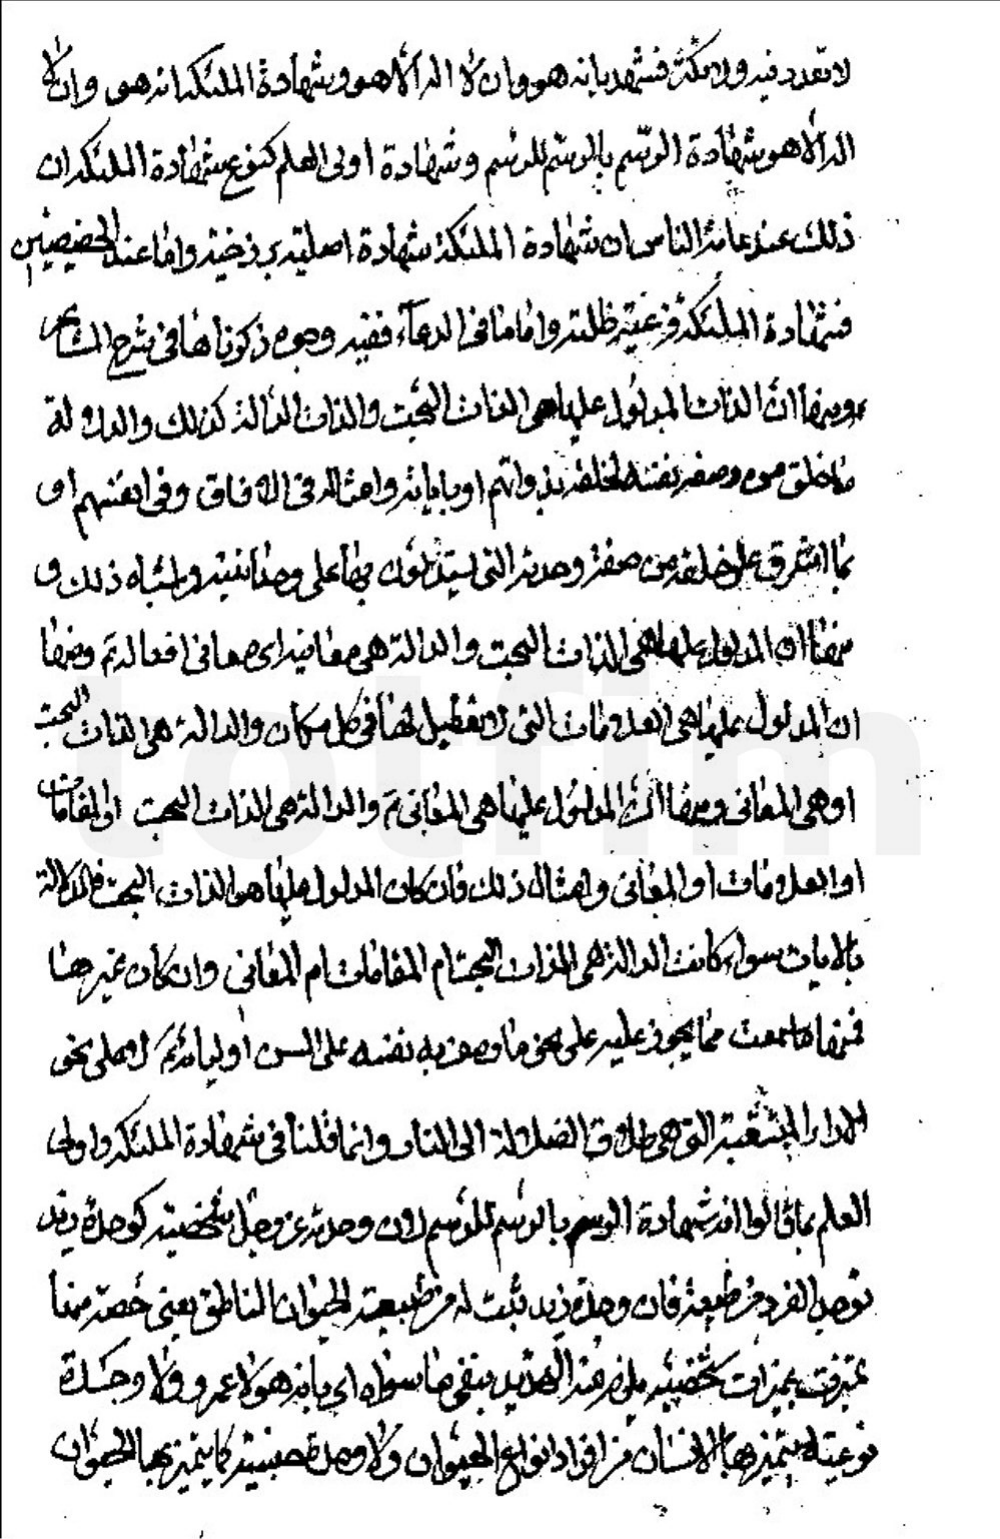 لا تعدد فيه ولا تكثّر فشهد بانه هو وان لا اله الا هو وشهادة الملئكة انه هو وان لا
اله الا هو شهادة الرسم بالرسم للرسم وشهادة اولى العلم كنوع شهادة الملئكة ان
ذلك عند عامة الناس ان شهادة الملئكة شهادة اصلية برزخية واما عند
فشهادة الملئكة فرعية ظلية واما ما فى الدعآء ففيه وجوه ذكرناها فى شرح المشاعر
ومنها ان الذات المدلول عليها هى الذات البحت والذات الدالة كذلك والدلالة
ما خلق من وصف نفسه لخلقه بذواتهم او باياته وامثاله فى الافاق وفى انفسهم او
بما اشرق على خلقه من صفة وحدته التى يستدلون بها على وحدانيته واشباه ذلك و
منها ان المدلول عليها هى الذات البحت والدالة هى معانيه اى معانى افعاله ثم ومنها
ان المدلول عليها هى العلامات التى لا تعطيل لها فى كل مكان والدالة هى الذات البحت
او هى المعانى ومنها ان المدلول عليها هى المعانى ثم والدالة هى الذات البحت او المقامات
او العلامات او المعانى وامثال ذلك فان كان المدلول عليها هو الذات البحت فالدلالة
بالايات سواء كانت الدالة هى الذات البحت ام المقامات ام المعانى وان كان غيرها
فمنها ما سمعت مما يجوز عليه على نحو ما وصف به نفسه على السن اوليائه لا على نحو
الاراء المتشعبة التى هى طرق الضلالة الى النار وانما قلنا فى شهادة الملئكة واولى
العلم بما قالوا انه شهادة الرسم بالرسم للرسم لان وحدته عز وجل شخصية كوحدة زيد
الفرد من طبيعة فان وحدة زيد ثبت له من طبيعة الحيوان الناطق يعنى حصة منها
تميزت بمميزات شخصية هذا زيد بنفى ما سواه اى بانه هو لا عمرو ولا وحدة
نوعية يتميز بها الانسان من افراد انواع الحيوان ولا وحدة جنسية كما يتميز بها الحيوان